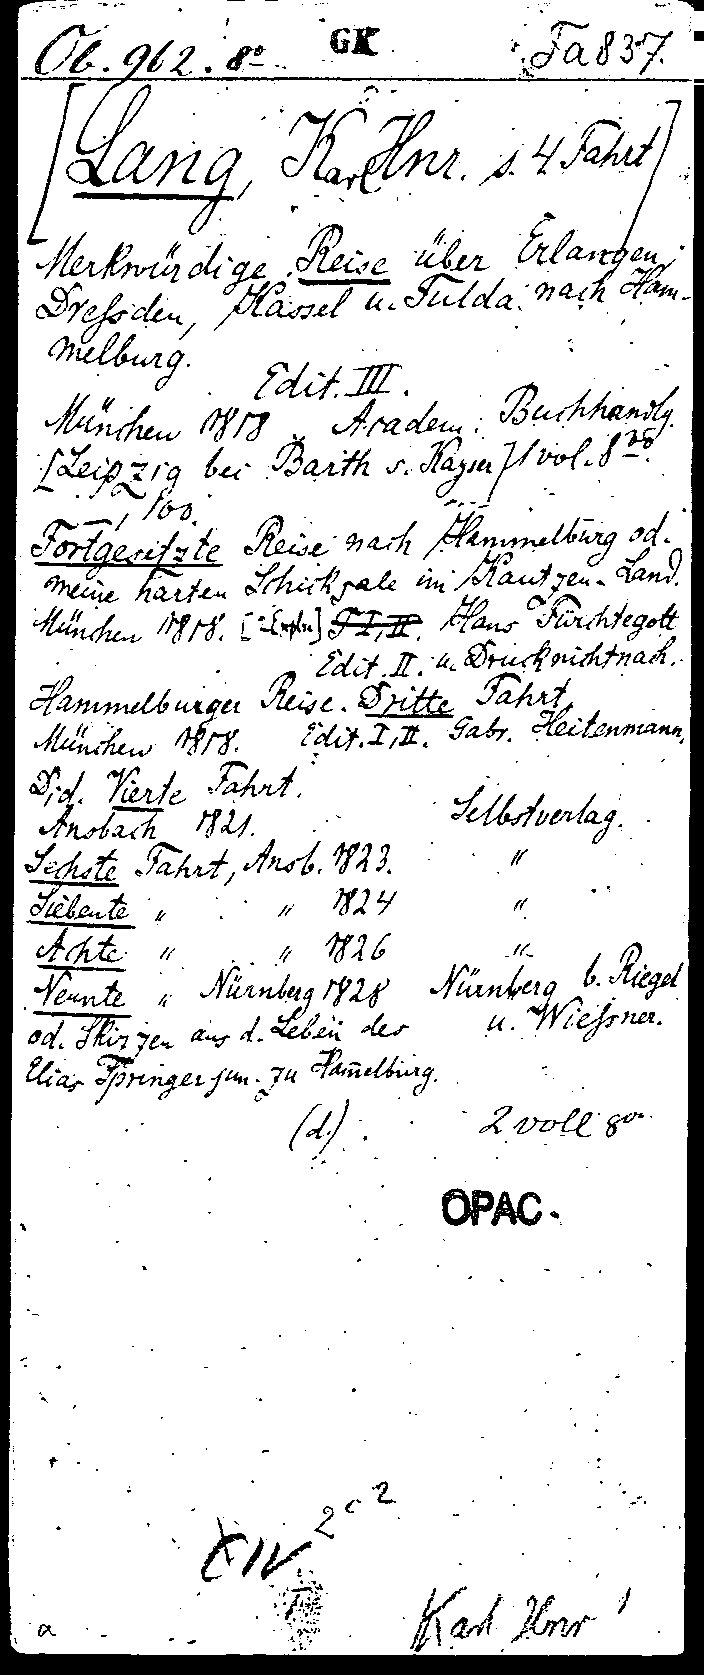 Ob. 962. 8° GK Ta 837.
[Lang, Karl Hnr. s. 4 Fahrt]
Merkwürdige Reise über Erlangen,
Dreßden, Kassel u. Fulda nach Ham-
melburg.
Edit. III.
München 1818 Academ. Buchhandlg.
[Leipzig bei Barth s. Kayser] 1 vol. 8vo.
Fortgesitzte Reise nach Hammelburg od.
meine harten Schicksale im Kautzen-Land.
München 1818. Hans Fürchtegott
Edit. II. u. Drucknichtnach.
Hammelburger Reise. Dritte Fahrt
München 1818. Edit. I, II. Gabr. Heitenmann,
Did. Vierte Fahrt.
Ansbach 1821. Selbstverlag.
Sechste Fahrt, Ansb. 1823. "
Siebente " " 1824 "
Achte " " 1826 "
Neunte " Nürnberg 1828 Nürnberg b. Riegel
od. Skizzen aus d. Leben des u. Wießner.
Elias Springer jun. zu Ham̄elburg.
(d.) 2 voll 8vo
OPAC.
2 c 2
XIV
a Karl Hnr